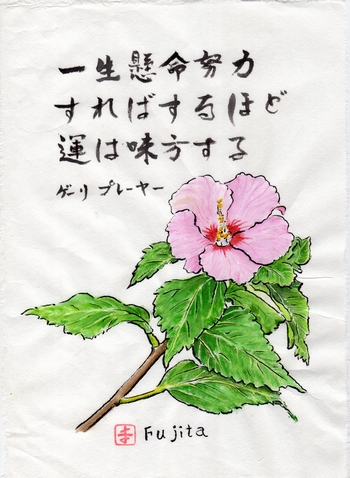 一生懸命努力
すればするほど
運は味方する
ゲーリ プレーヤー
Fujita